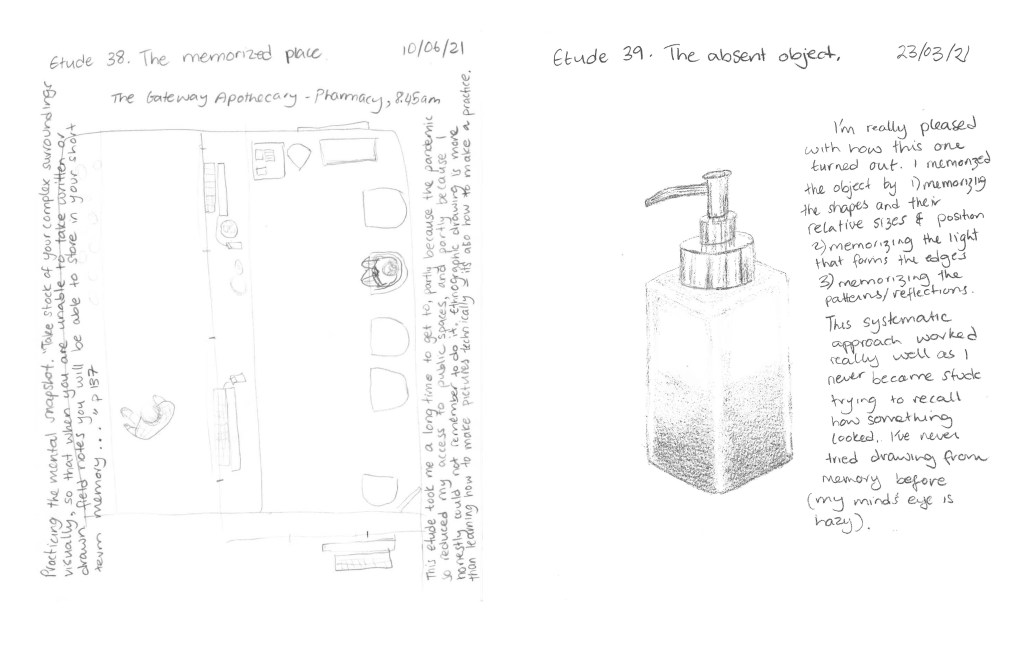 Etude 38. The memorized place.
10/06/21
The Gateway Apothecary - Pharmacy, 8.45am
Practicing the mental snapshot. "Take stock of your complex surroundings
visually, so that when you are unable to take written or
drawn field notes you will be able to store in your short
term memory..." p 137
This etude took me a long time to get to, partly because the pandemic
so reduced my access to public spaces, and partly because I
honestly could not remember to do it. Ethnographic drawing is more
than learning how to make pictures technically, it's also how to make a practice.
Etude 39. The absent object.
23/03/21
I'm really pleased
with how this one
turned out. I memorized
the object by 1) memorizing
the shapes and their
relative sizes & position
2) memorizing the light
that forms the edges
3) memorizing the
patterns/reflections.
This systematic
approach worked
really well as I
never became stuck
trying to recall
how something
looked. I've never
tried drawing from
memory before
(my mind's eye is
hazy).